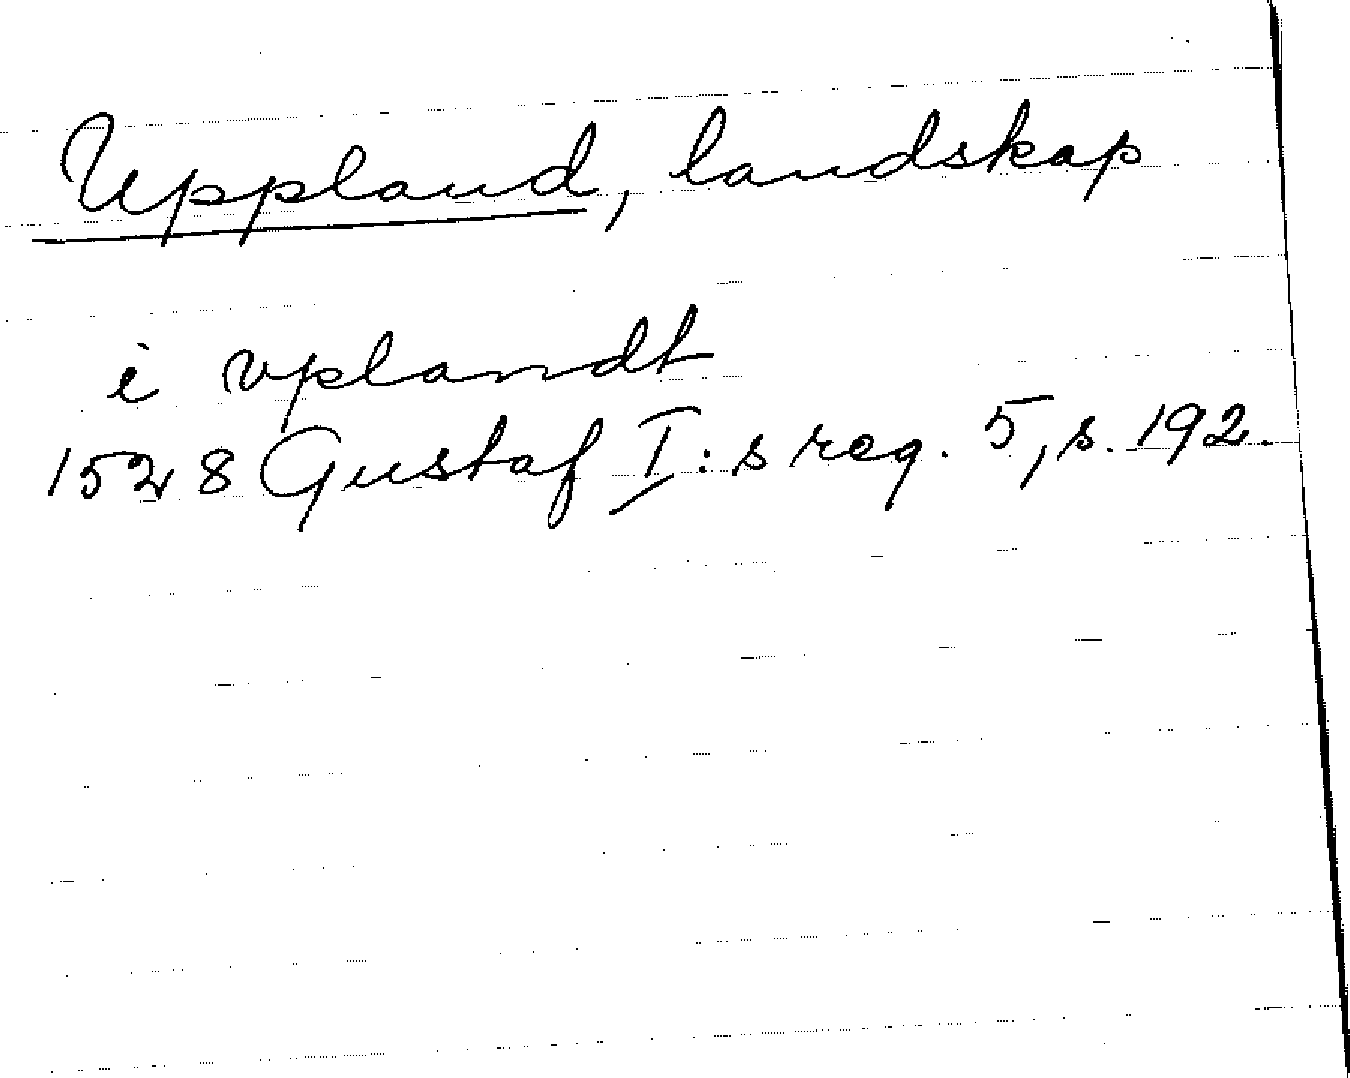 Uppland, landskap
i vplandt
1528 Gustaf I:s reg. 5, s. 192.